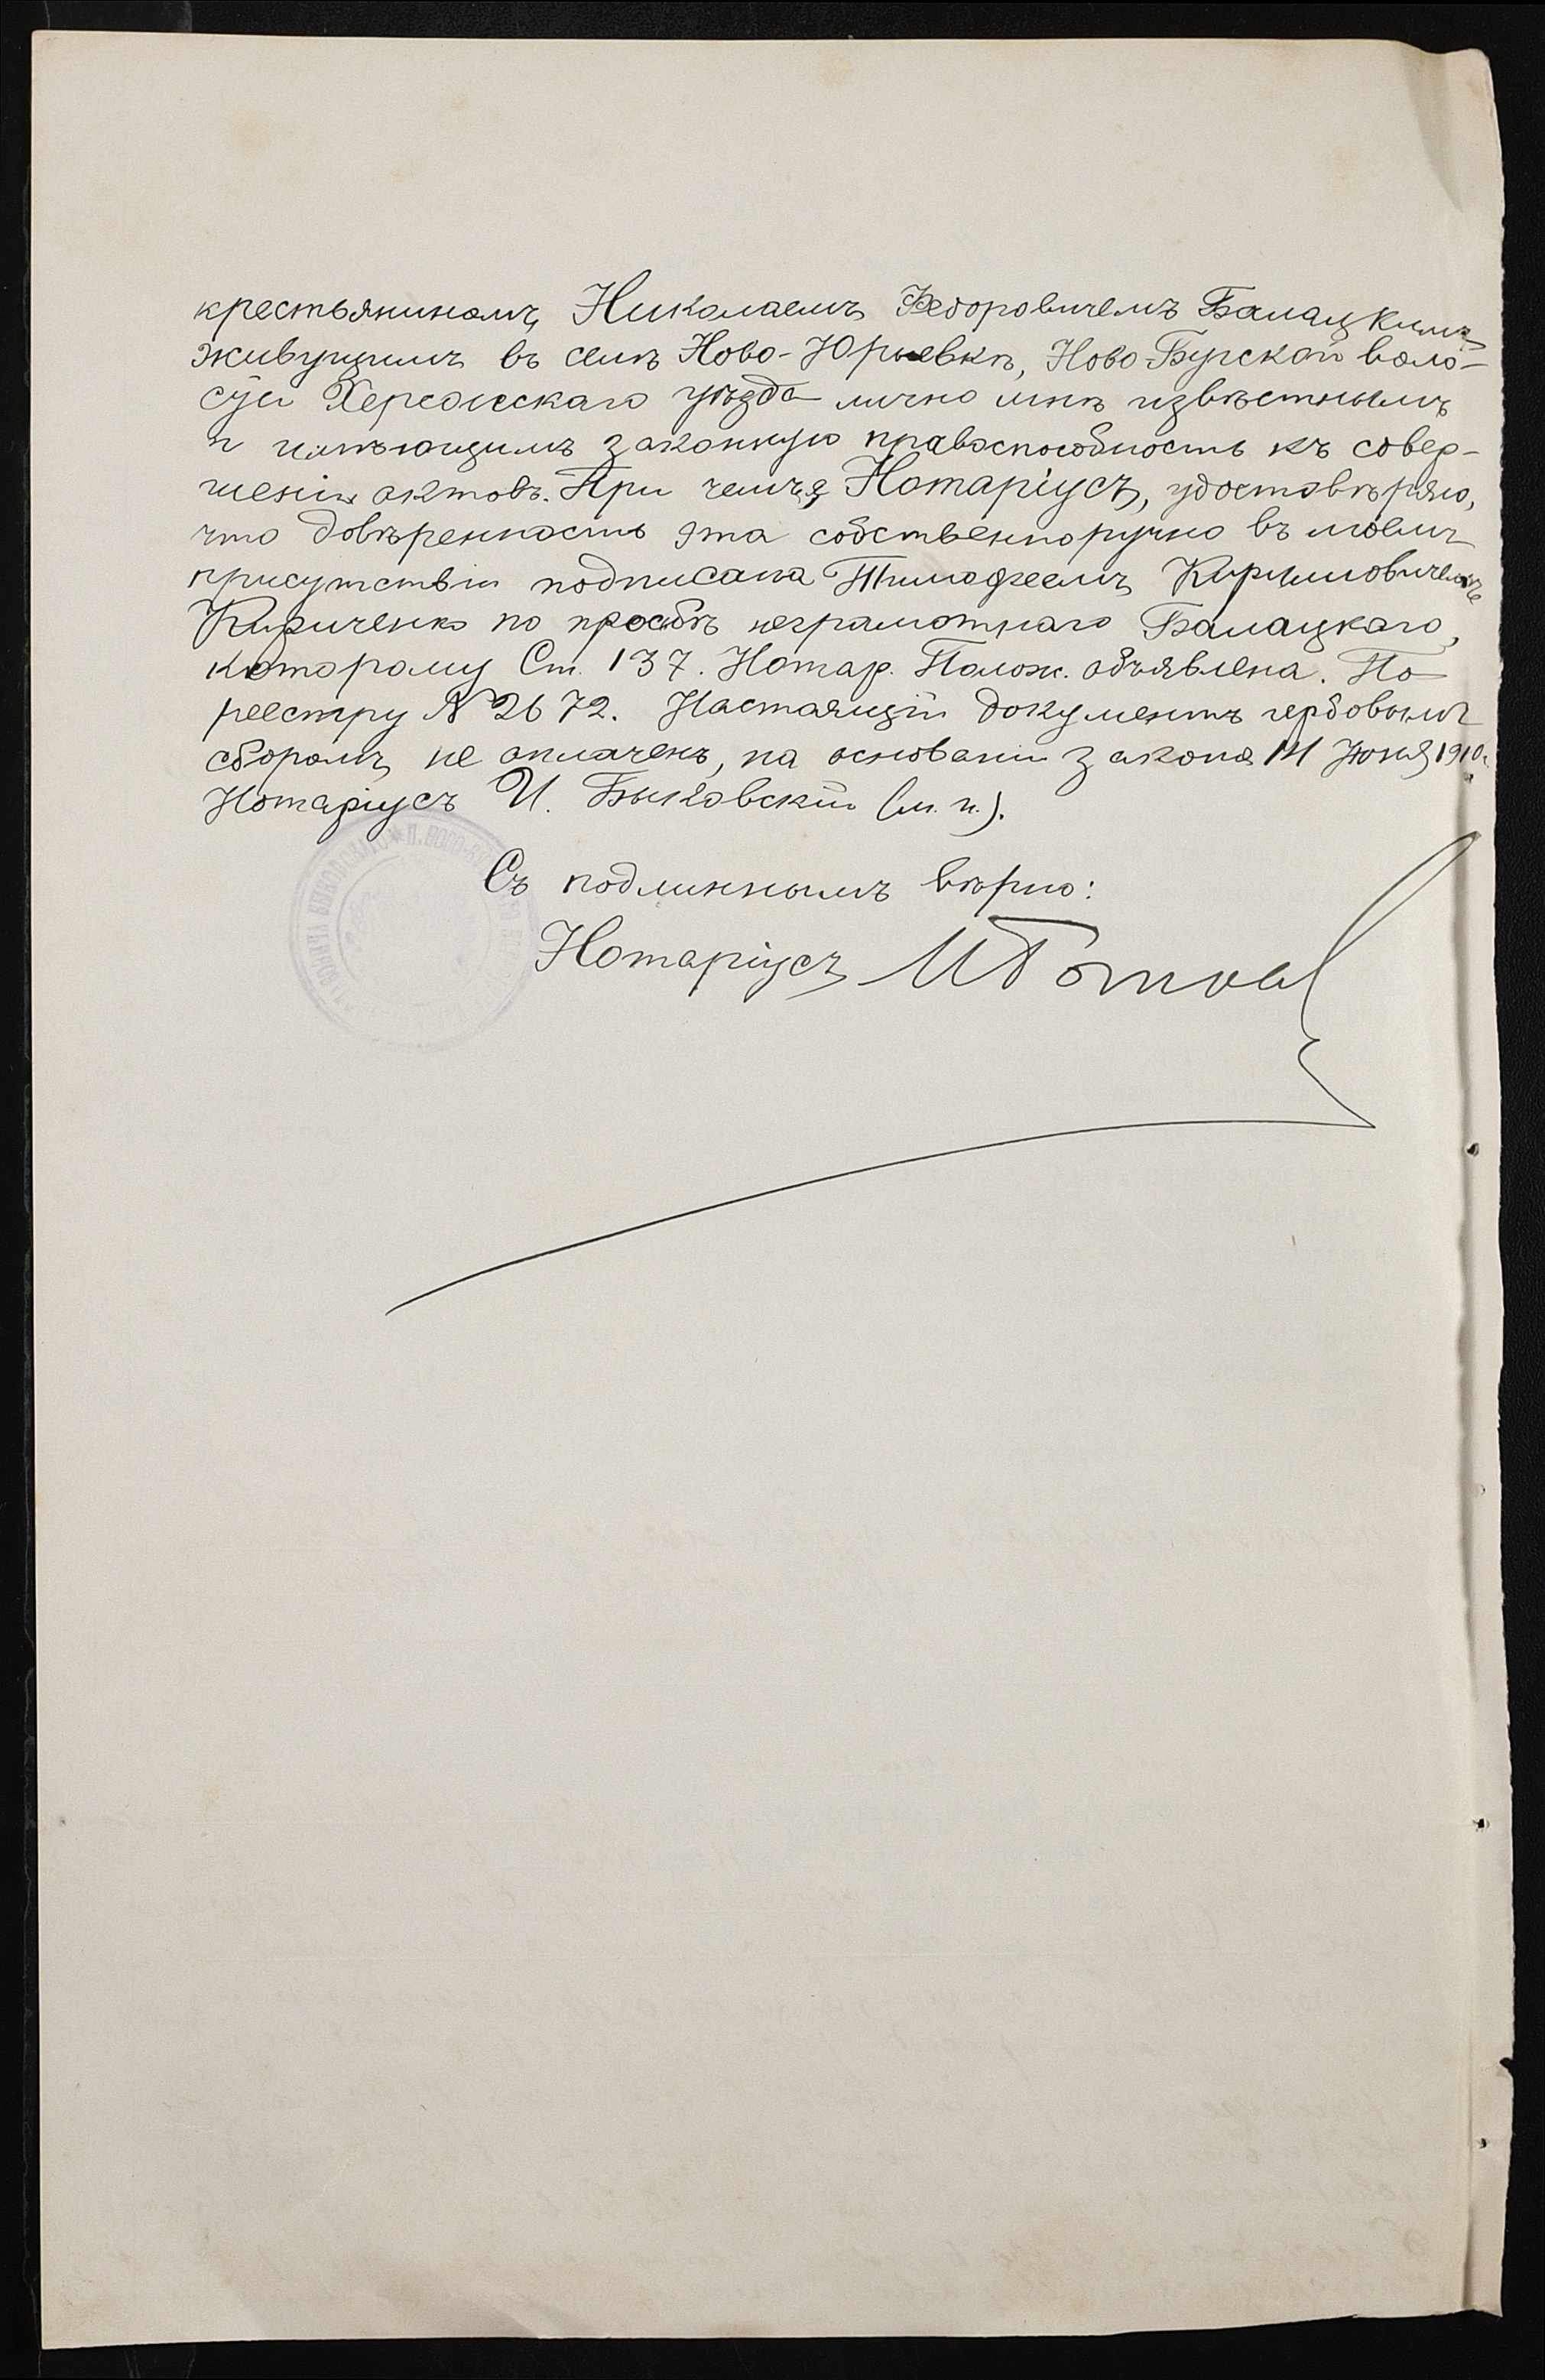 крестьяниномъ Николаемъ Федоровичемъ Балацкимъ
живущимъ въ селѣ Ново-Юрьевкѣ, Ново-Бугской воло-
сти Херсонскаго уѣзда лично мнѣ извѣстнымъ
и имѣющимъ законную правоспособность къ совер-
шенію актовъ. При чемъ я Нотаріусъ, удостовѣряю,
что довѣренность эта собственноручно въ моемъ
присутствіи подписана Тимофеемъ Кирилловичемъ
Кириченко по просьбѣ неграмотнаго Балацкаго,
которому Ст. 137. Нотар. Полож. объявлена. По
реестру № 2672. Настоящій документъ гербовымъ
сборомъ не оплаченъ, на основаніи закона 14 Іюня 1910г.
Нотаріусъ И. Быковскій (м. п.).
Съ подлиннымъ вѣрно:
Нотаріусъ